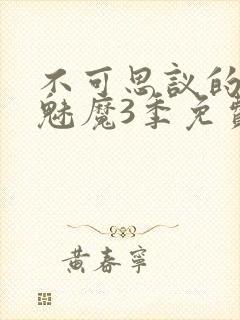 不可思议的
魅魔3季免費
黄春寧